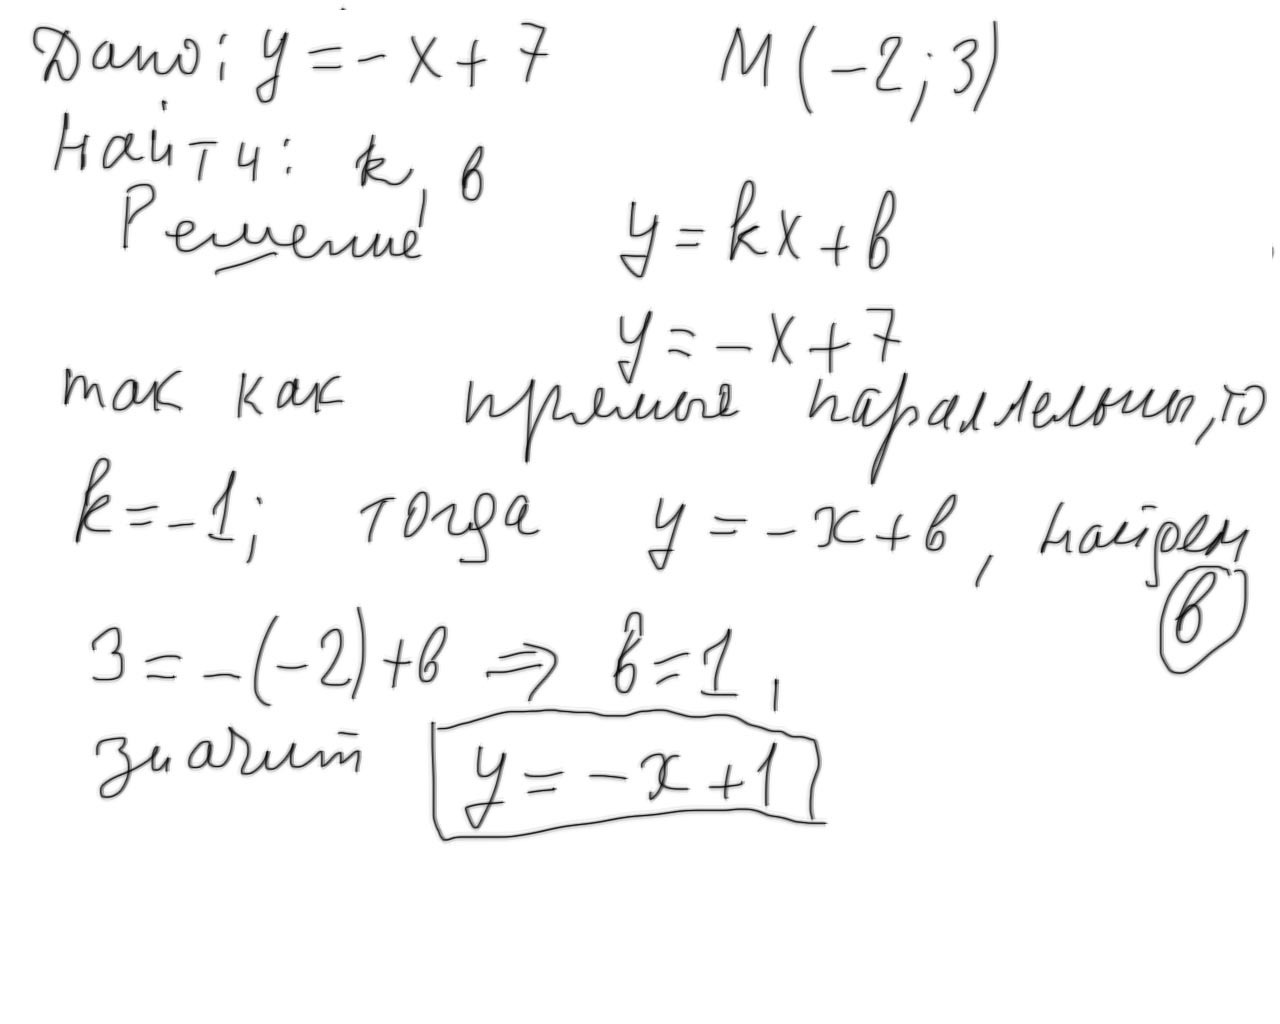 Дано: y = -x + 7 M(-2; 3)
Найти: k, b
Решение
y = kx + b
y = -x + 7
так как прямые параллельны, то
k = -1; тогда y = -x + b, найдем
b
3 = -(-2) + b ⇒ b = 1,
значит y = -x + 1